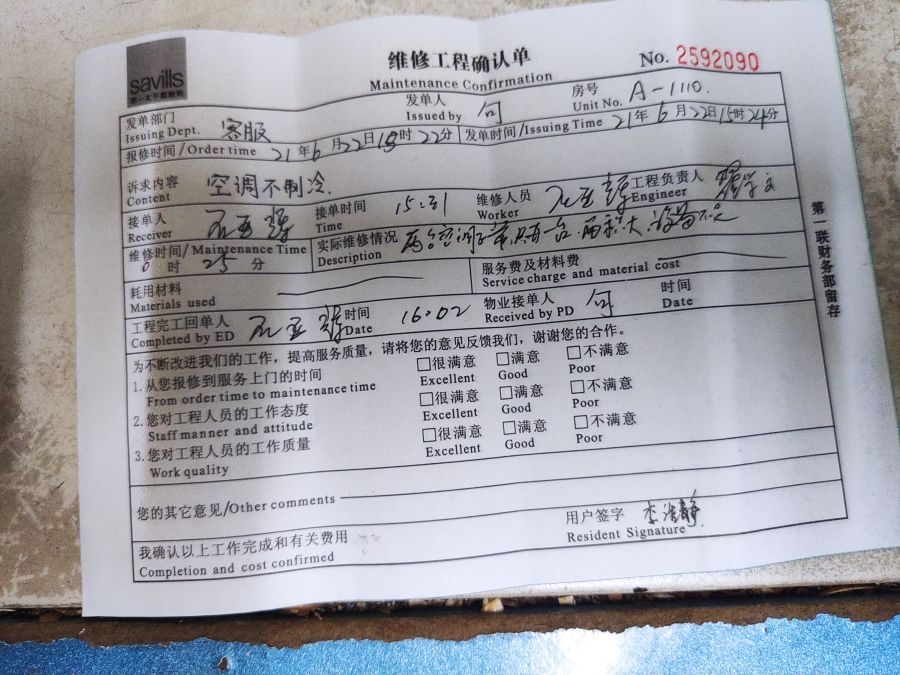 savills
第一太平戴维斯
维修工程确认单
Maintenance Confirmation
No. 2592090
发单部门 客服 发单人 句 房号 A-1110.
Issuing Dept. Issued by Unit No.
报修时间/Order time 21年6月22日15时22分 发单时间/Issuing Time 21年6月22日15时24分
诉求内容 空调不制冷.
Content
接单人 接单时间 15:31 维修人员 工程负责人
Receiver Time Worker Engineer
维修时间/Maintenance Time 实际维修情况
0时25分 Description
耗用材料 服务费及材料费
Materials used Service charge and material cost
工程完工回单人 时间 16:02 物业接单人 句 时间
Completed by ED Date Received by PD Date
为不断改进我们的工作，提高服务质量，请将您的意见反馈我们，谢谢您的合作。
1. 从您报修到服务上门的时间 □很满意 □满意 □不满意
From order time to maintenance time Excellent Good Poor
2. 您对工程人员的工作态度 □很满意 □满意 □不满意
Staff manner and attitude Excellent Good Poor
3. 您对工程人员的工作质量 □很满意 □满意 □不满意
Work quality Excellent Good Poor
您的其它意见/Other comments
我确认以上工作完成和有关费用 用户签字
Completion and cost confirmed Resident Signature
第一联财务部留存